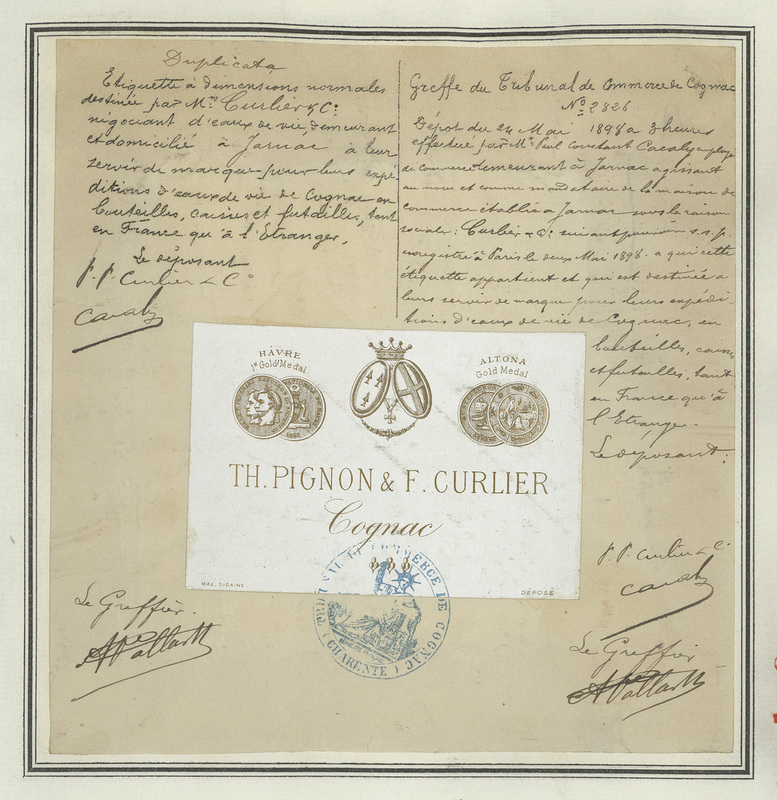 Duplicata
Etiquette à dimensions normales
destinée par Mrs Curlier & Cº
négociant d'eaux de vie, demeurant
et domicilié à Jarnac à leur
servir de marque pour leurs expé-
ditions d'eaux de vie de Cognac en
bouteilles, caisses et futailles, tant
en France qu'à l'Etranger.
Le déposant
P. P. Curlier & Cº
Greffe du Tribunal de Commerce de Cognac
Nº 2826
Dépôt du 24 Mai 1898 à 3 heures
effectué par Mr Paul Constant employé
de commerce demeurant à Jarnac agissant
au nom et comme mandataire de la maison de
commerce établie à Jarnac sous la raison
sociale: Curlier & Cº suivant pouvoir s.s.p.
enregistré à Paris le deux Mai 1898. a qui cette
étiquette appartient et qui est destinée a
leurs servir de marque pour leurs expédi-
tions d'eaux de vie de Cognac, en
bouteilles, caisses
et futailles, tant
en France qu'à
l'Etranger.
Le déposant:
P. P. Curlier & Cº
HÂVRE
1st Gold Medal
ALTONA
Gold Medal
TH. PIGNON & F. CURLIER
Cognac
MAX. SIDAINE.
DÉPOSÉ
TRIBUNAL DE COMMERCE DE COGNAC
(CHARENTE)
Le Greffier.
Le Greffier